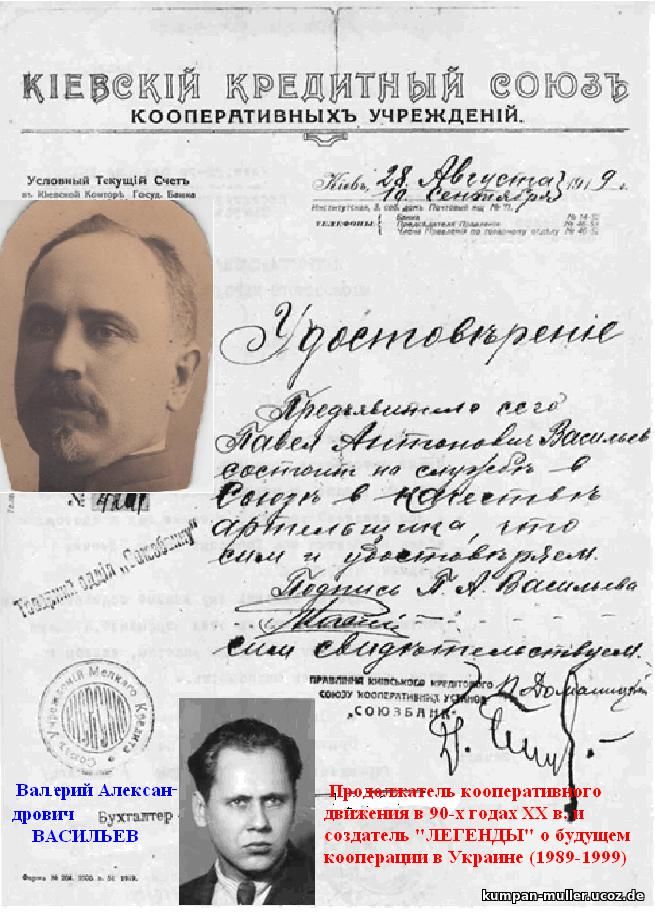 КІЕВСКІЙ КРЕДИТНЫЙ СОЮЗЪ
КООПЕРАТИВНЫХЪ УЧРЕЖДЕНІЙ.
Условный Текущій Счетъ
въ Кіевской Конторѣ Госуд. Банка
Кіевъ, 28 Августа 1919 г.
10 Сентября
Институтская, 3, соб. домъ. Почтовый ящ. № 71.
ТЕЛЕФОНЫ:
Банка
Предсѣдателя Правленія
Члена Правленія по товарному отдѣлу
Удостовѣреніе
Предъявитель сего
Павел Антонович Васильев
состоит на службѣ в
Союзѣ в качествѣ
артельщика, что
сим и удостовѣряем.
Подпись П. А. Васильева
сим свидѣтельствуем.
№
"Союзбанку"
ПРАВЛІННЯ КИІВСЬКОГО КРЕДИТОВОГО
СОЮЗУ КООПЕРАТИВНИХ УСТАНОВ
„СОЮЗБАНК"
Союзъ Учрежденій Мелкаго Кредита
Бухгалтер
Валерий Алексан-
дрович
ВАСИЛЬЕВ
Продолжатель кооперативного
движения в 90-х годах XX в. и
создатель "ЛЕГЕНДЫ" о будущем
кооперации в Украине (1989-1999)
kumpan-muller.ucoz.de